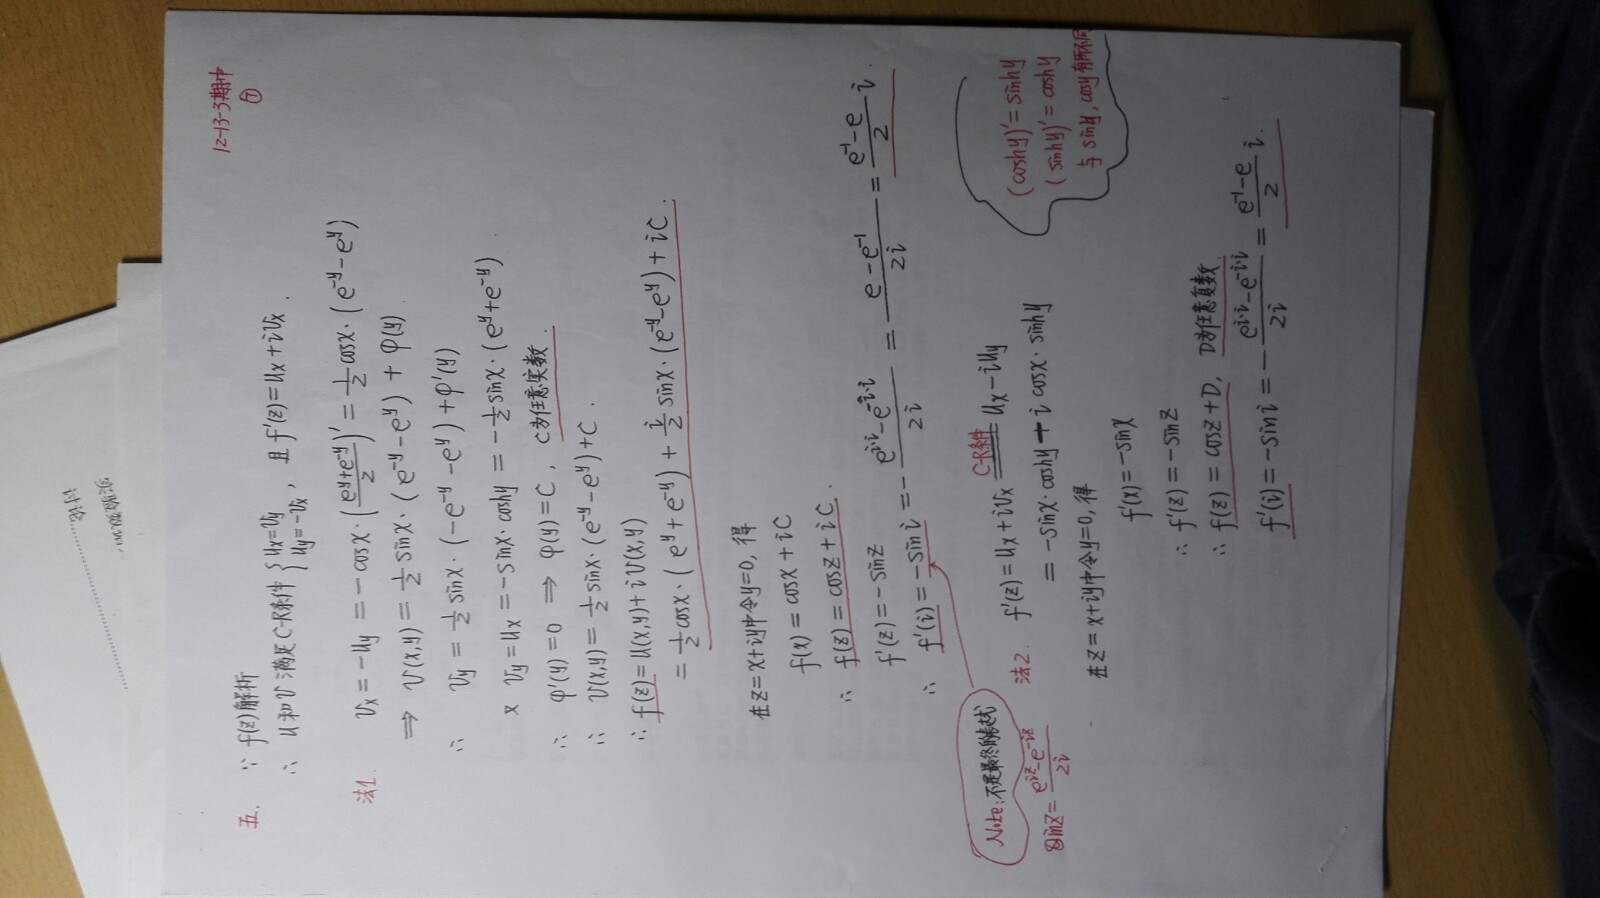 12-13-3期中
①
五. ∵ f(z)解析
∴ u和v满足C-R条件 { ux=vy, uy=-vx , 且 f'(z)=ux+ivx.
法1. vx=-uy=-cosx·((e^y+e^-y)/2)'=1/2 cosx·(e^-y-e^y)
⇒ v(x,y)=1/2 sinx·(e^-y-e^y)+φ(y)
∴ vy=1/2 sinx·(-e^-y-e^y)+φ'(y)
x vy=ux=-sinx·coshy=-1/2 sinx·(e^y+e^-y)
∴ φ'(y)=0 ⇒ φ(y)=C, C为任意实数.
∴ v(x,y)=1/2 sinx·(e^-y-e^y)+C.
∴ f(z)=u(x,y)+iv(x,y)
=1/2 cosx·(e^y+e^-y)+i/2 sinx·(e^-y-e^y)+iC.
在z=x+iy中令y=0,得
f(x)=cosx+iC
∴ f(z)=cosz+iC.
f'(z)=-sinz
∴ f'(i)=-sini=-(e^i·i-e^-i·i)/2i=-(e-e^-1)/2i=(e^-1-e)/2 i.
Note:不是最终的表达式
sinz=(e^iz-e^-iz)/2i
法2. f'(z)=ux+ivx C-R条件 ux-iuy
=-sinx·coshy+icosx·sinhy
(coshy)'=sinhy
(sinhy)'=coshy
与siny,cosy有所不同
在z=x+iy中令y=0,得
f'(x)=-sinx
∴ f'(z)=-sinz
∴ f(z)=cosz+D, D为任意复数.
f'(i)=-sini=-(e^i·i-e^-i·i)/2i=(e^-1-e)/2 i.